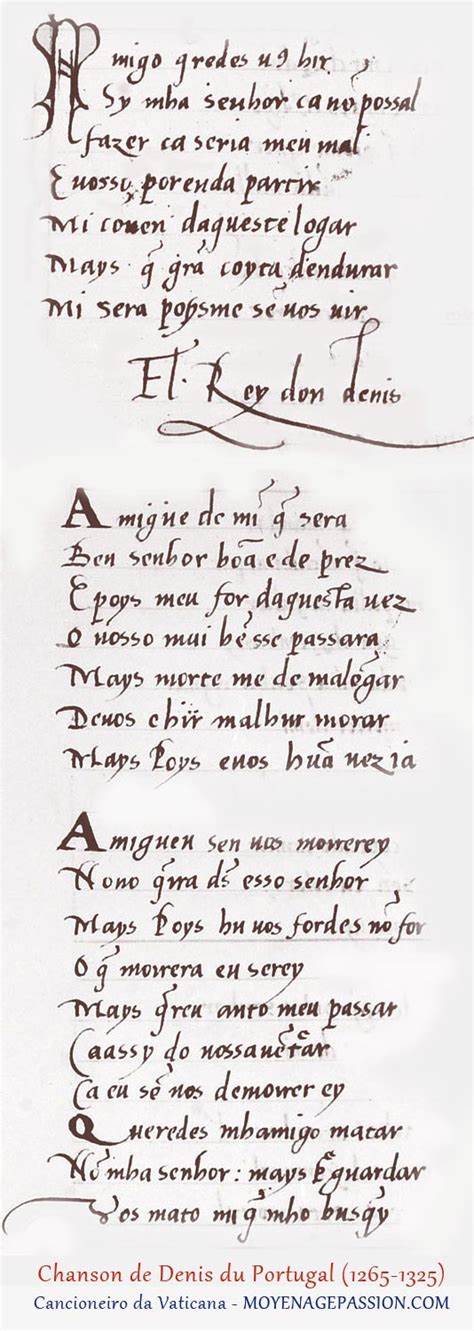 Amigo q̃redes uꝯ hir
Sy mha senhor ca nõ possal
fazer ca seria meu mal
E uosso porenda partir
Mi cõuen daqueste logar
Mays q̃ g̃ra coyta dendurar
Mi sera poys me sẽ uos uir
El Rey don denis
Amigue de mĩ q̃ sera
Ben senhor bõa e de prez
E poys meu for daquesta uez
O uosso mui bẽ sse passara
Mays morte me de malogar
Deuos e hir malhur morar
Mays Poys euos hũa uez ia
Amigueu sen uos morrerey
Nono q̃rra ds̃ esso senhor
Mays Poys hu uos fordes nõ for
O q̃ morrera eu serey
Mays q̃reu anto meu passar
Ca assy do uossauẽtar
Ca eu sẽ uos de morrer ey
Queredes mhamigo matar
Nõ mha senhor: mays guardar
Uos mato mi q̃ mho busq̃y
Chanson de Denis du Portugal (1265-1325)
Cancioneiro da Vaticana - MOYENAGEPASSION.COM